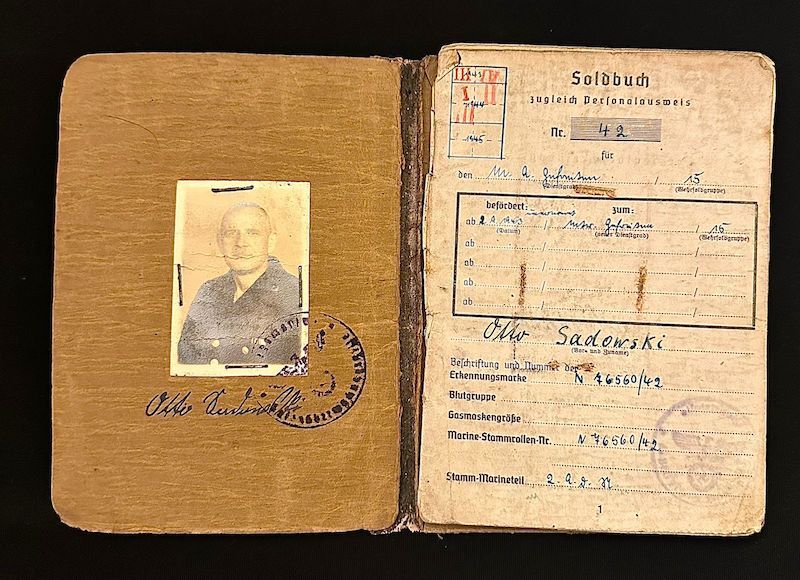 Otto
1943
1944
1945
Soldbuch
zugleich Personalausweis
Nr. 42
für
den M. A. Gefreiten / 15
(Dienstgrad) (Wehrsoldgruppe)
befördert: zum:
ab / Gefreiten / 15
(Datum) (neuer Dienstgrad) (Wehrsoldgruppe)
ab / /
ab / /
ab / /
ab / /
Otto Sadowski
(Vor- und Zuname)
Beschriftung und Nummer der
Erkennungsmarke N 76560/42
Blutgruppe
Gasmaskengröße
Marine-Stammrollen-Nr. N 76560/42
Stamm-Marineteil 2. A. d. N
1